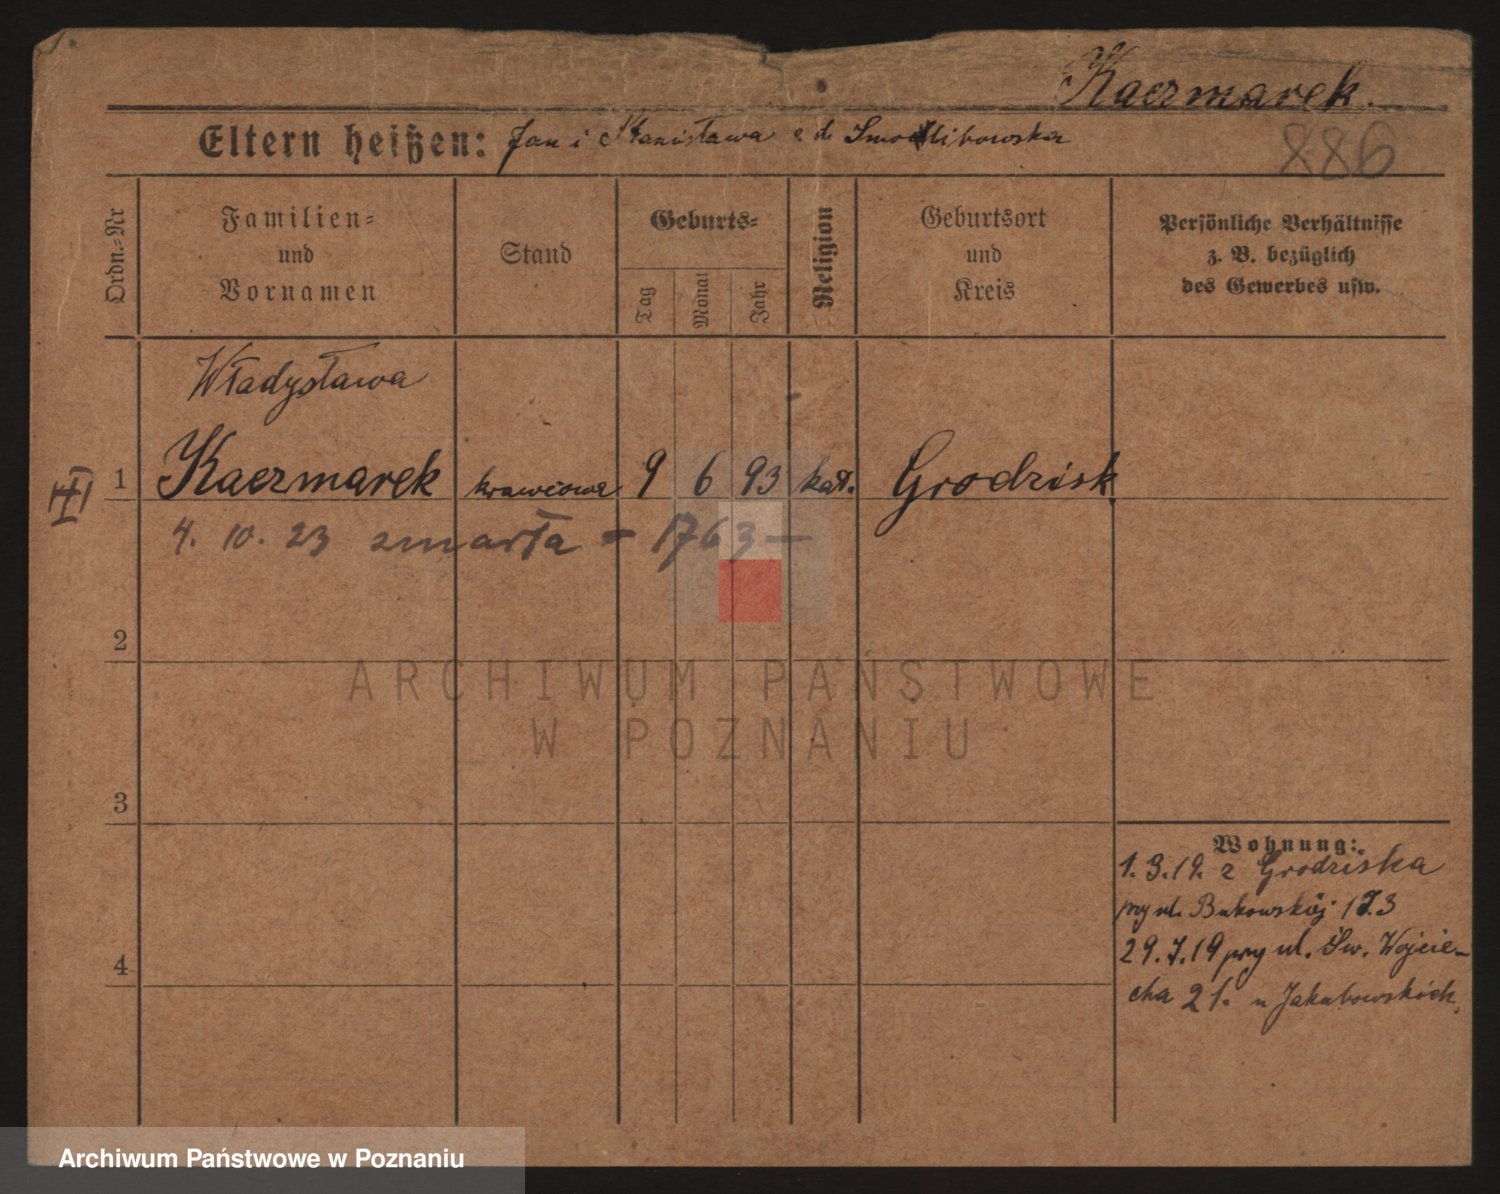 Kaczmarek.
Eltern heißen: Jan i Stanisława z d. Smodlibowska
886
Ordn.=Nr
Familien=
und
Vornamen
Stand
Geburts=
Tag
Monat
Jahr
Religion
Geburtsort
und
Kreis
Persönliche Verhältnisse
z. B. bezüglich
des Gewerbes usw.
Władysława
III
1 Kaczmarek krawcowa 9 6 93 kat. Grodzisk
4. 10. 23 zmarła = 1763 —
2
ARCHIWUM PAŃSTWOWE
W POZNANIU
3
Wohnung:
1.3.19. z Grodziska
przy ul. Bukowskiej
29.7.19 przy ul. Św. Wojcie-
4
cha 21. u Jakubowskich.
Archiwum Państwowe w Poznaniu